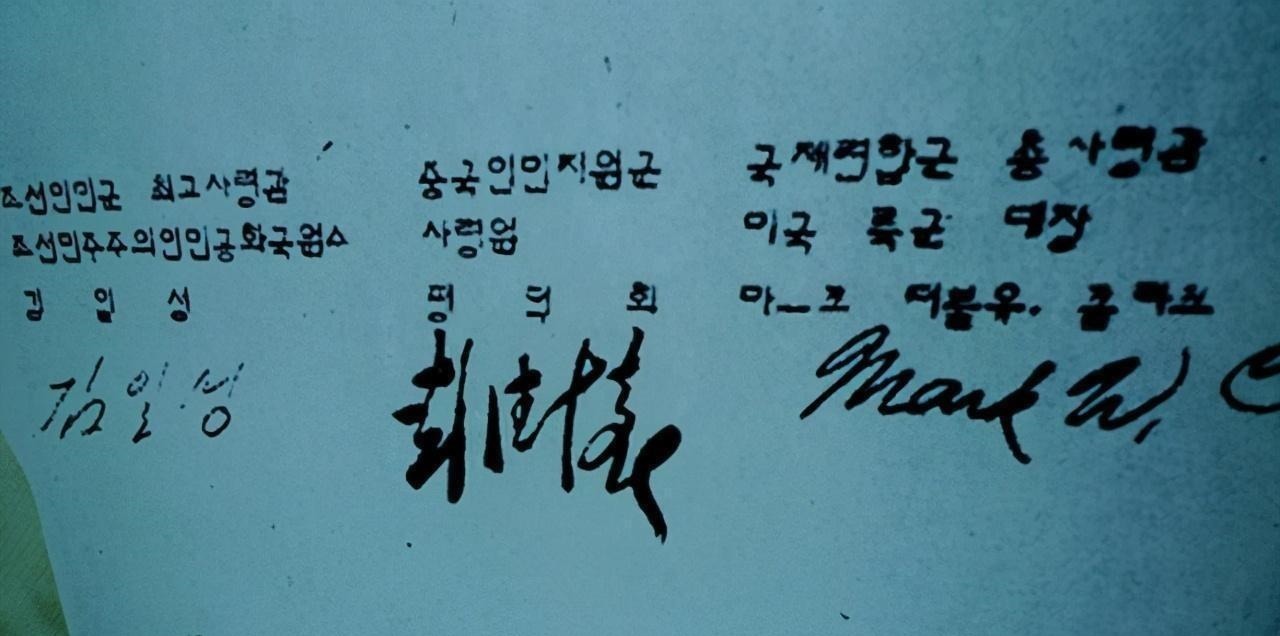 조선인민군 최고사령관
조선민주주의인민공화국원수
김 일 성
김일성
중국인민지원군
사령원
펑 덕 회
彭德懷
국제련합군 총사령관
미국 륙군 대장
마_크 더블유. 클라크
Mark W. C